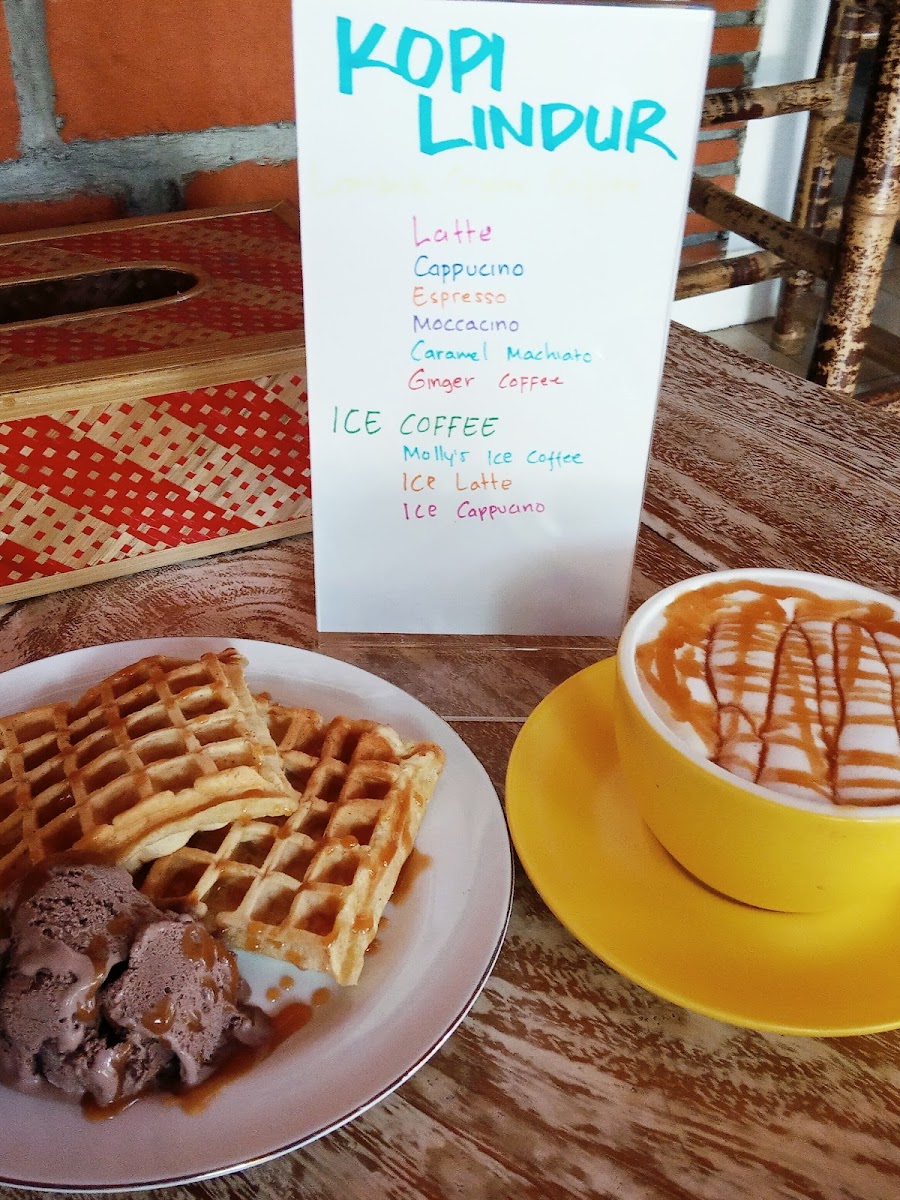 KOPI
LINDUR
Latte
Cappucino
Espresso
Moccacino
Caramel Machiato
Ginger Coffee
ICE COFFEE
Molly's Ice Coffee
Ice Latte
Ice Cappucino